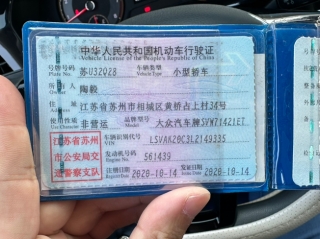 中华人民共和国机动车行驶证
Vehicle License of the People's Republic of China
号牌号码 苏U32Q28 车辆类型 小型轿车
Plate No. Vehicle Type
所有人 陶毅
Owner
住址 江苏省苏州市相城区黄桥占上村34号
Address
使用性质 非营运 品牌型号 大众汽车牌SVW71421ET
Use Character Model
江苏省苏州市公安局交通警察支队
车辆识别代号 LSVAK20C3L2149335
VIN
发动机号码 561439
Engine No.
注册日期 2020-10-14 发证日期 2020-10-14
Register Date Issue Date